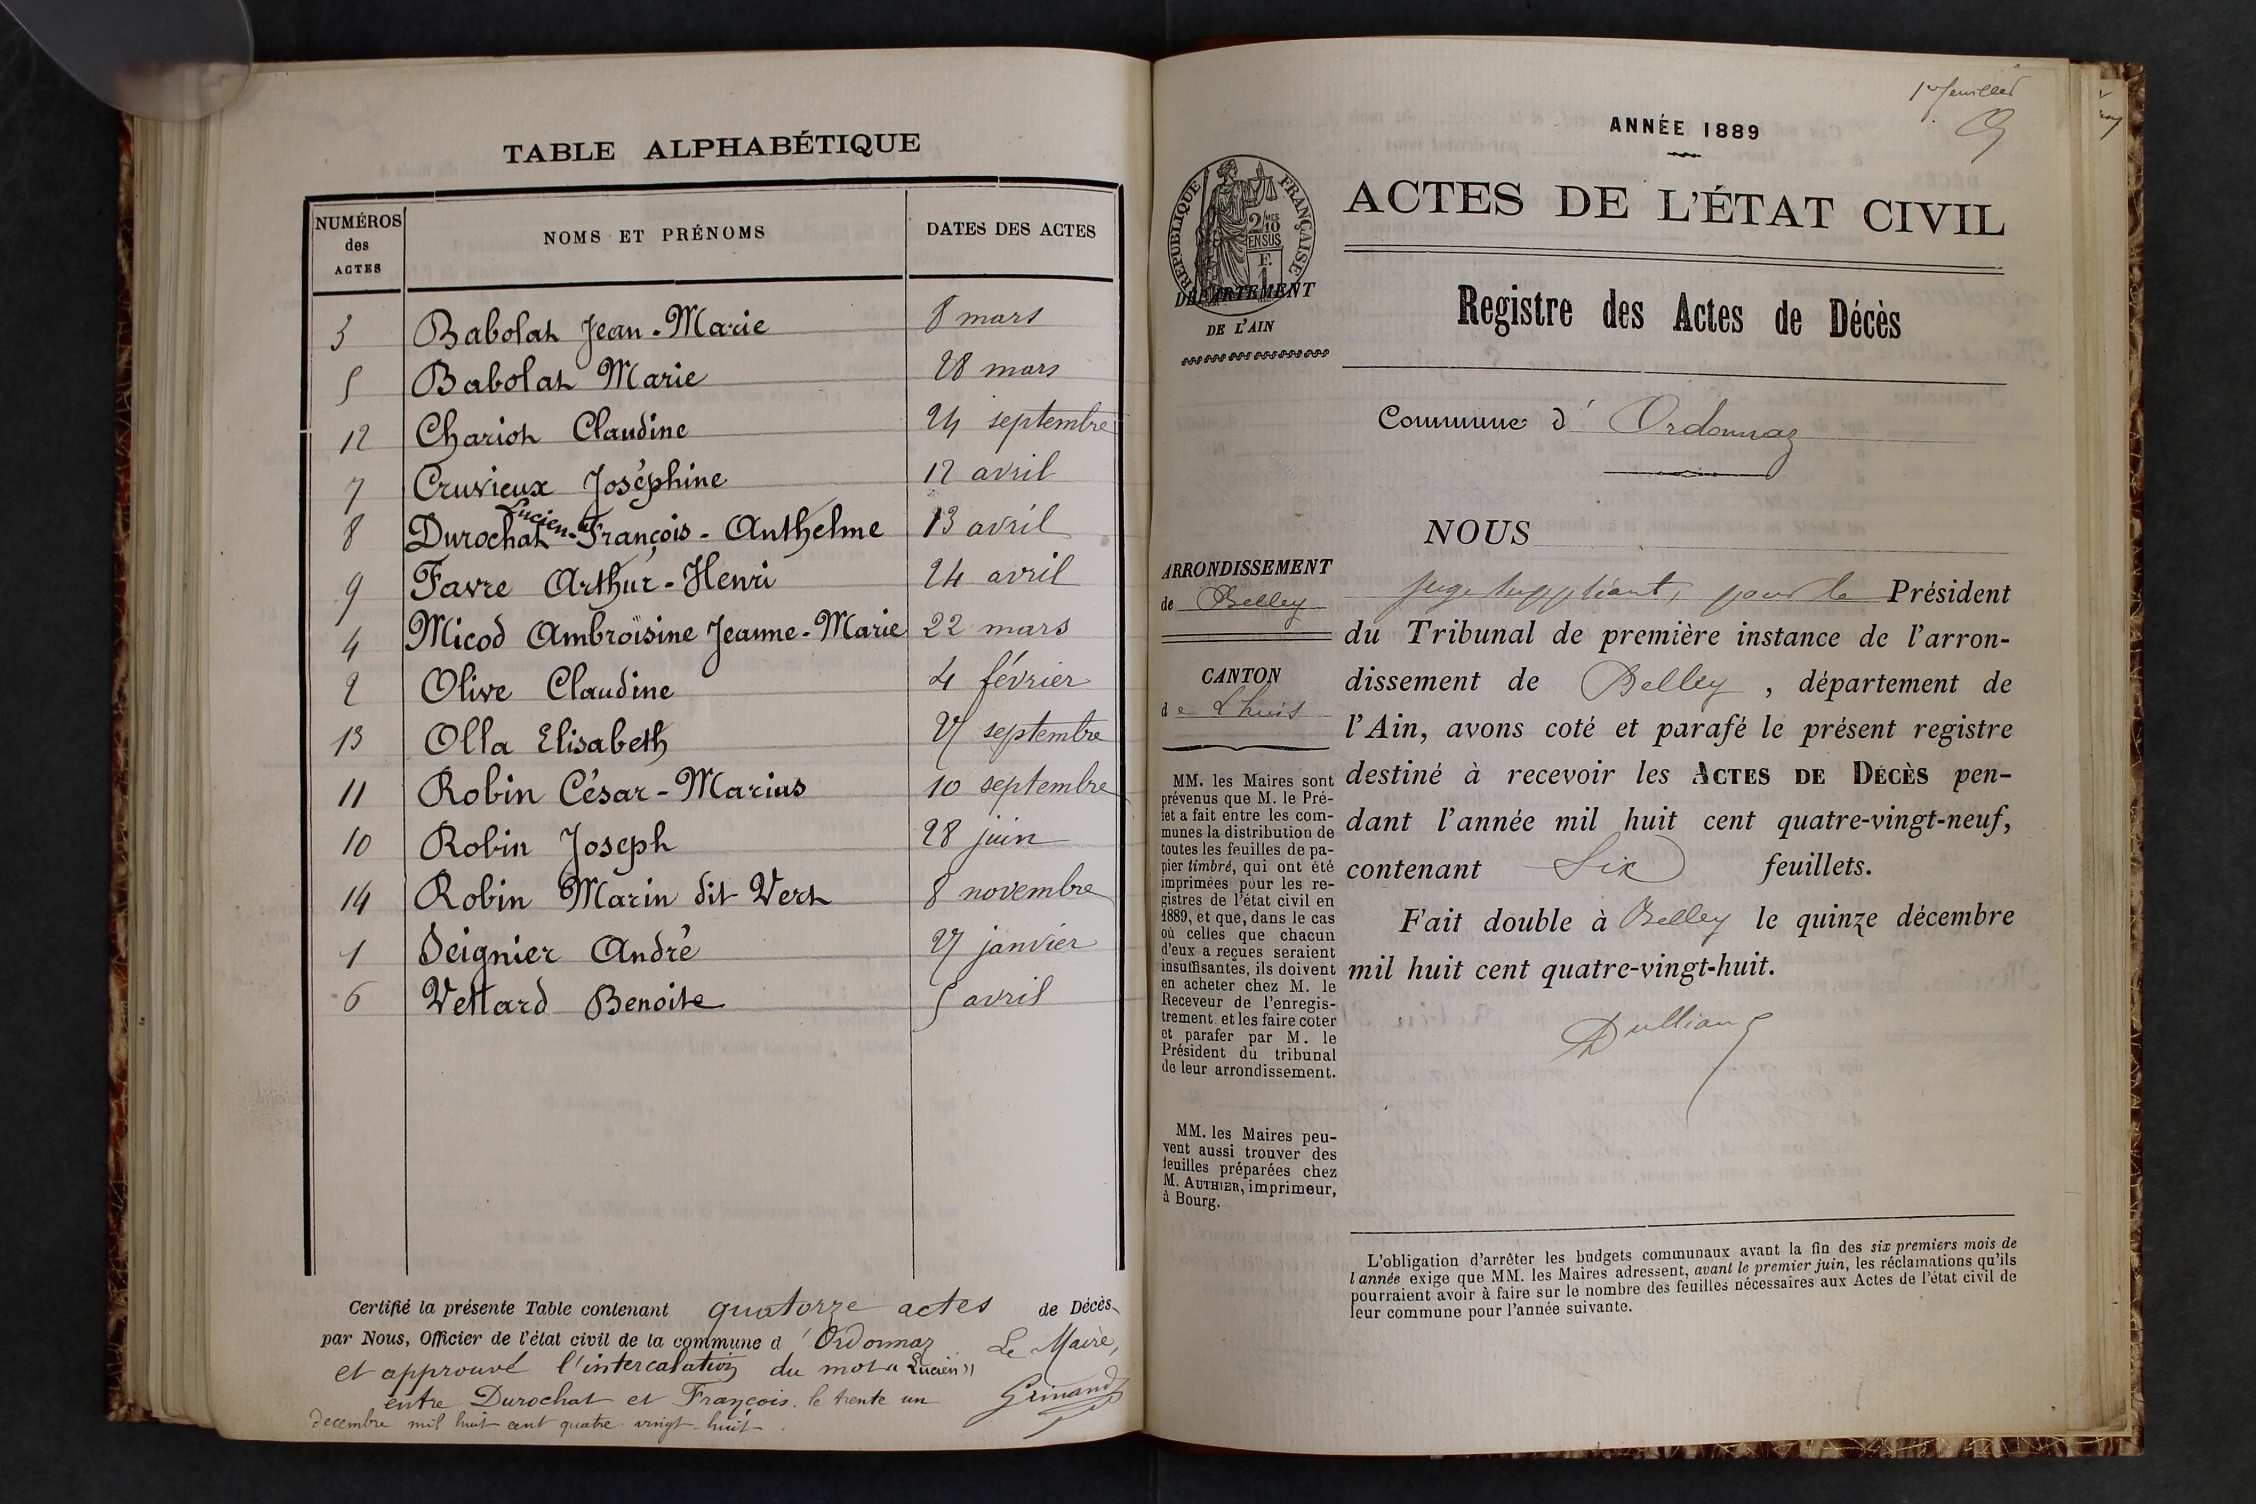 TABLE ALPHABÉTIQUE
NUMÉROS des ACTES NOMS ET PRÉNOMS DATES DES ACTES
3 Babolat Jean-Marie 8 mars
5 Babolat Marie 28 mars
12 Chariot Claudine 24 septembre
7 Cruvieux Joséphine 12 avril
Lucien-
8 Durochat François-Anthelme 13 avril
9 Favre Arthur-Henri 24 avril
4 Micod Ambroïsine Jeanne-Marie 22 mars
2 Olive Claudine 4 février
13 Olla Elisabeth 27 septembre
11 Robin César-Marius 10 septembre
10 Robin Joseph 28 juin
14 Robin Marin dit Vert 8 novembre
1 Seignier André 27 janvier
6 Vettard Benoite 5 avril
Certifié la présente Table contenant quatorze actes de Décès
par Nous, Officier de l'état civil de la commune d'Ordonnaz Le Maire,
et approuvé l'intercalation du mot « Lucien »
entre Durochat et François. le trente un
décembre mil huit cent quatre vingt huit
1er feuillet
ANNÉE 1889
ACTES DE L'ÉTAT CIVIL
RÉPUBLIQUE FRANÇAISE
2/10 MES
EN SUS
F.
1
DÉPARTEMENT
DE L'AIN
Registre des Actes de Décès
Commune d'Ordonnaz
ARRONDISSEMENT
de Belley
CANTON
de Lhuis
MM. les Maires sont
prévenus que M. le Pré-
fet a fait entre les com-
munes la distribution de
toutes les feuilles de pa-
pier timbré, qui ont été
imprimées pour les re-
gistres de l'état civil en
1889, et que, dans le cas
où celles que chacun
d'eux a reçues seraient
insuffisantes, ils doivent
en acheter chez M. le
Receveur de l'enregis-
trement et les faire coter
et parafer par M. le
Président du tribunal
de leur arrondissement.
MM. les Maires peu-
vent aussi trouver des
feuilles préparées chez
M. AUTHIER, imprimeur,
à Bourg.
NOUS
juge suppléant, pour le Président
du Tribunal de première instance de l'arron-
dissement de Belley, département de
l'Ain, avons coté et parafé le présent registre
destiné à recevoir les ACTES DE DÉCÈS pen-
dant l'année mil huit cent quatre-vingt-neuf,
contenant Six feuillets.
Fait double à Belley le quinze décembre
mil huit cent quatre-vingt-huit.
L'obligation d'arrêter les budgets communaux avant la fin des six premiers mois de
l'année exige que MM. les Maires adressent, avant le premier juin, les réclamations qu'ils
pourraient avoir à faire sur le nombre des feuilles nécessaires aux Actes de l'état civil de
leur commune pour l'année suivante.